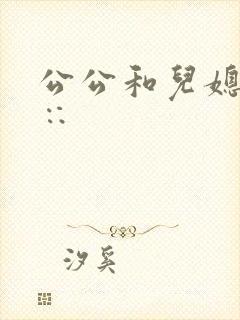 公公和兒媳
::
汐奚